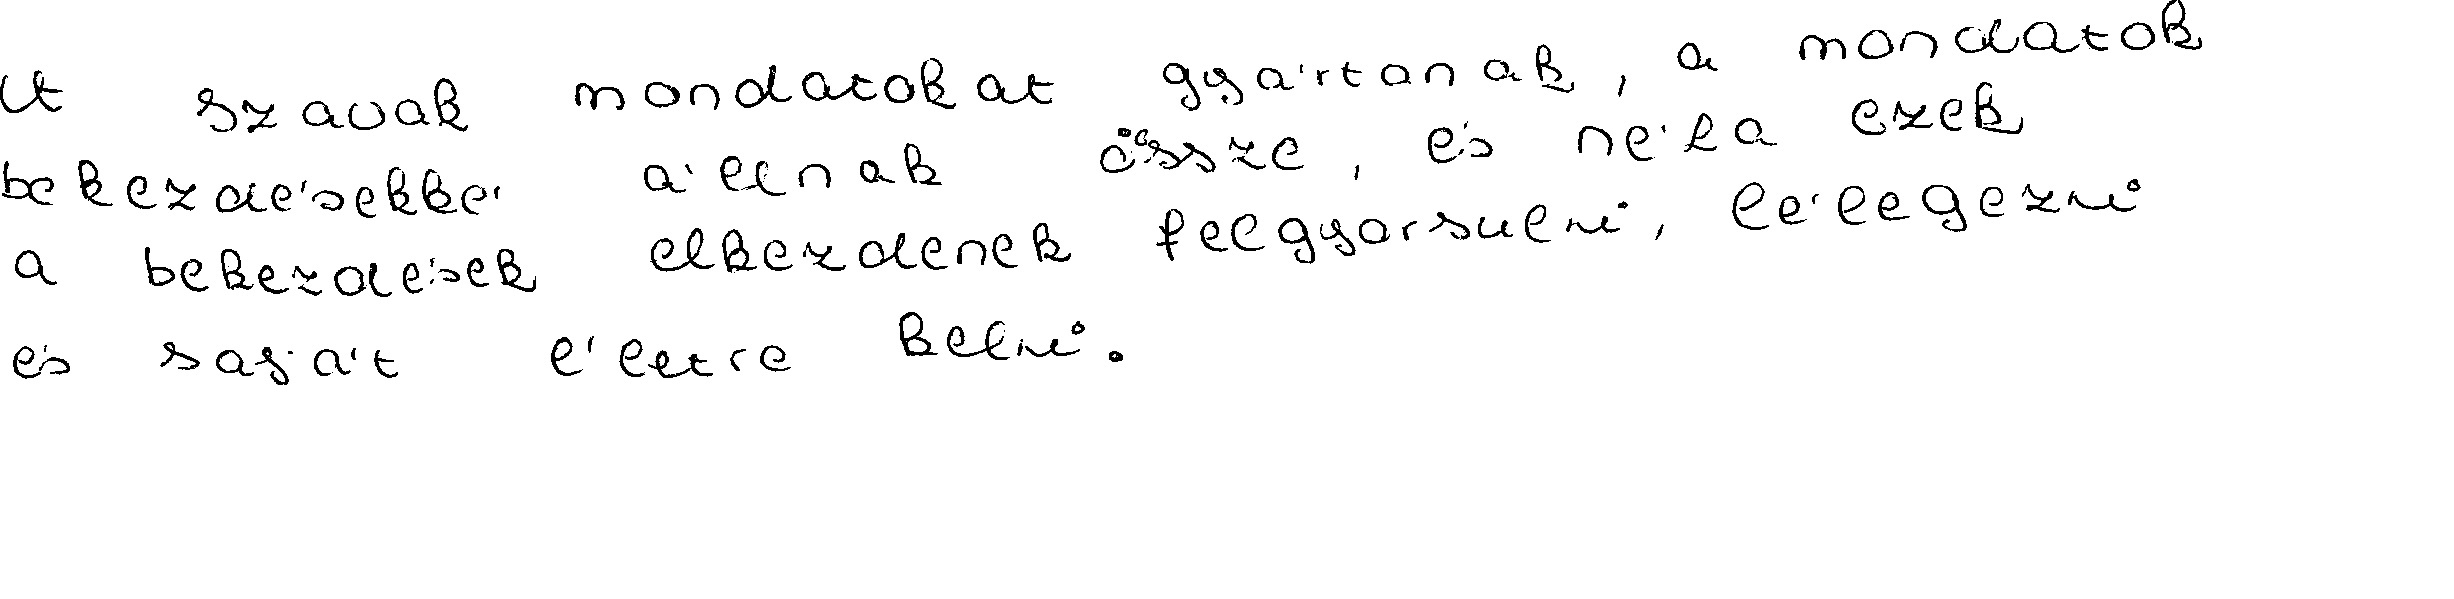 A szavak mondatokat gyártanak, a mondatok
bekezdésekké állnak össze, és néha ezek
a bekezdések elkezdenek felgyorsulni, lélegezni
és saját életre kelni.